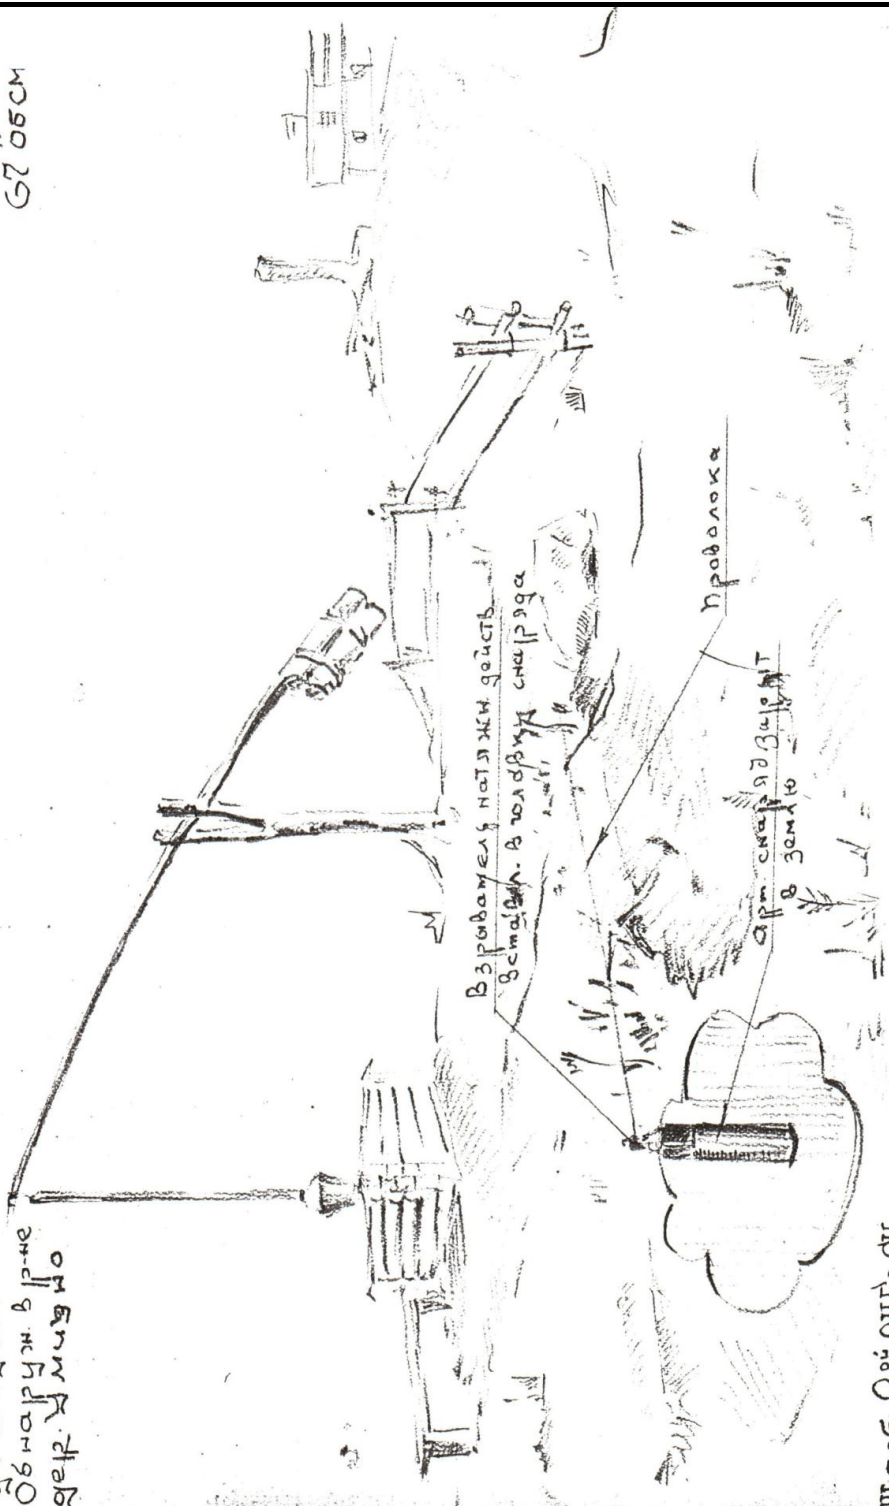 Обнаруж. в р-не
дер. Умизно
67 ОБСМ
Взрыватель натяжн. действ.
вставл. в головку снаряда
Проволока
арт. снаряд зарыт
в землю